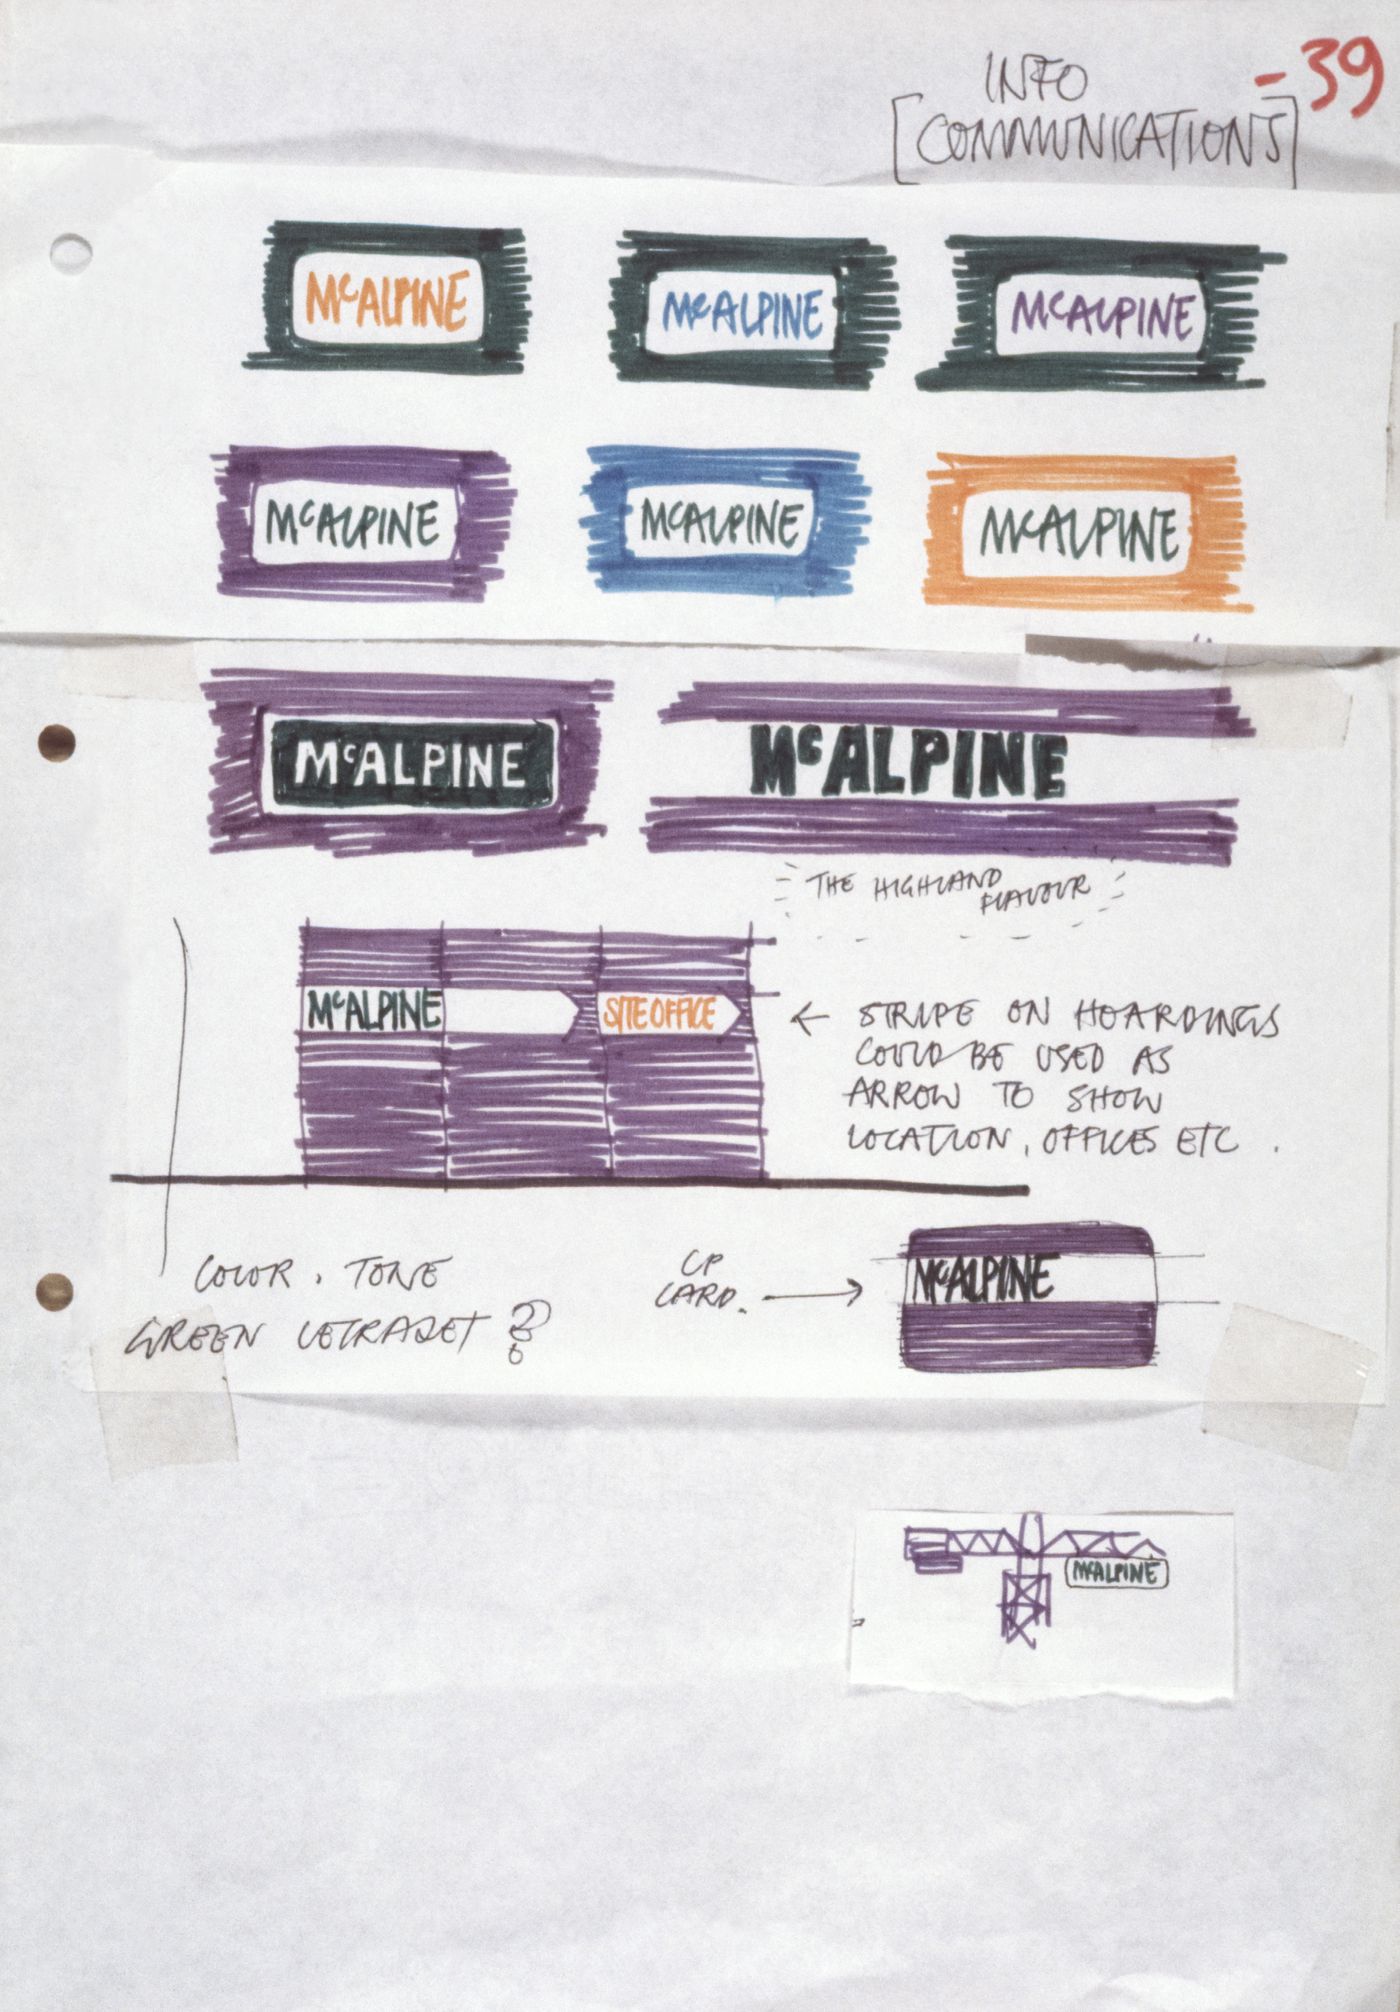 INFO
[COMMUNICATIONS]
-39
McALPINE
McALPINE
McALPINE
McALPINE
McALPINE
McALPINE
McALPINE
McALPINE
THE HIGHLAND
FLAVOUR
McALPINE
SITE OFFICE
← STRIPE ON HOARDINGS
COULD BE USED AS
ARROW TO SHOW
LOCATION, OFFICES ETC.
COLOR. TONE
GREEN LETRASET ?
CARD. →
McALPINE
McALPINE